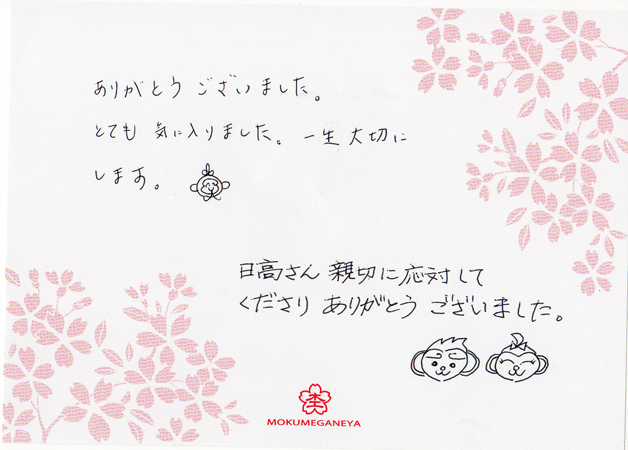 ありがとう ございました。
とても 気に入りました。一生 大切に
します。
日高さん 親切に応対して
くださり ありがとう ございました。
MOKUMEGANEYA